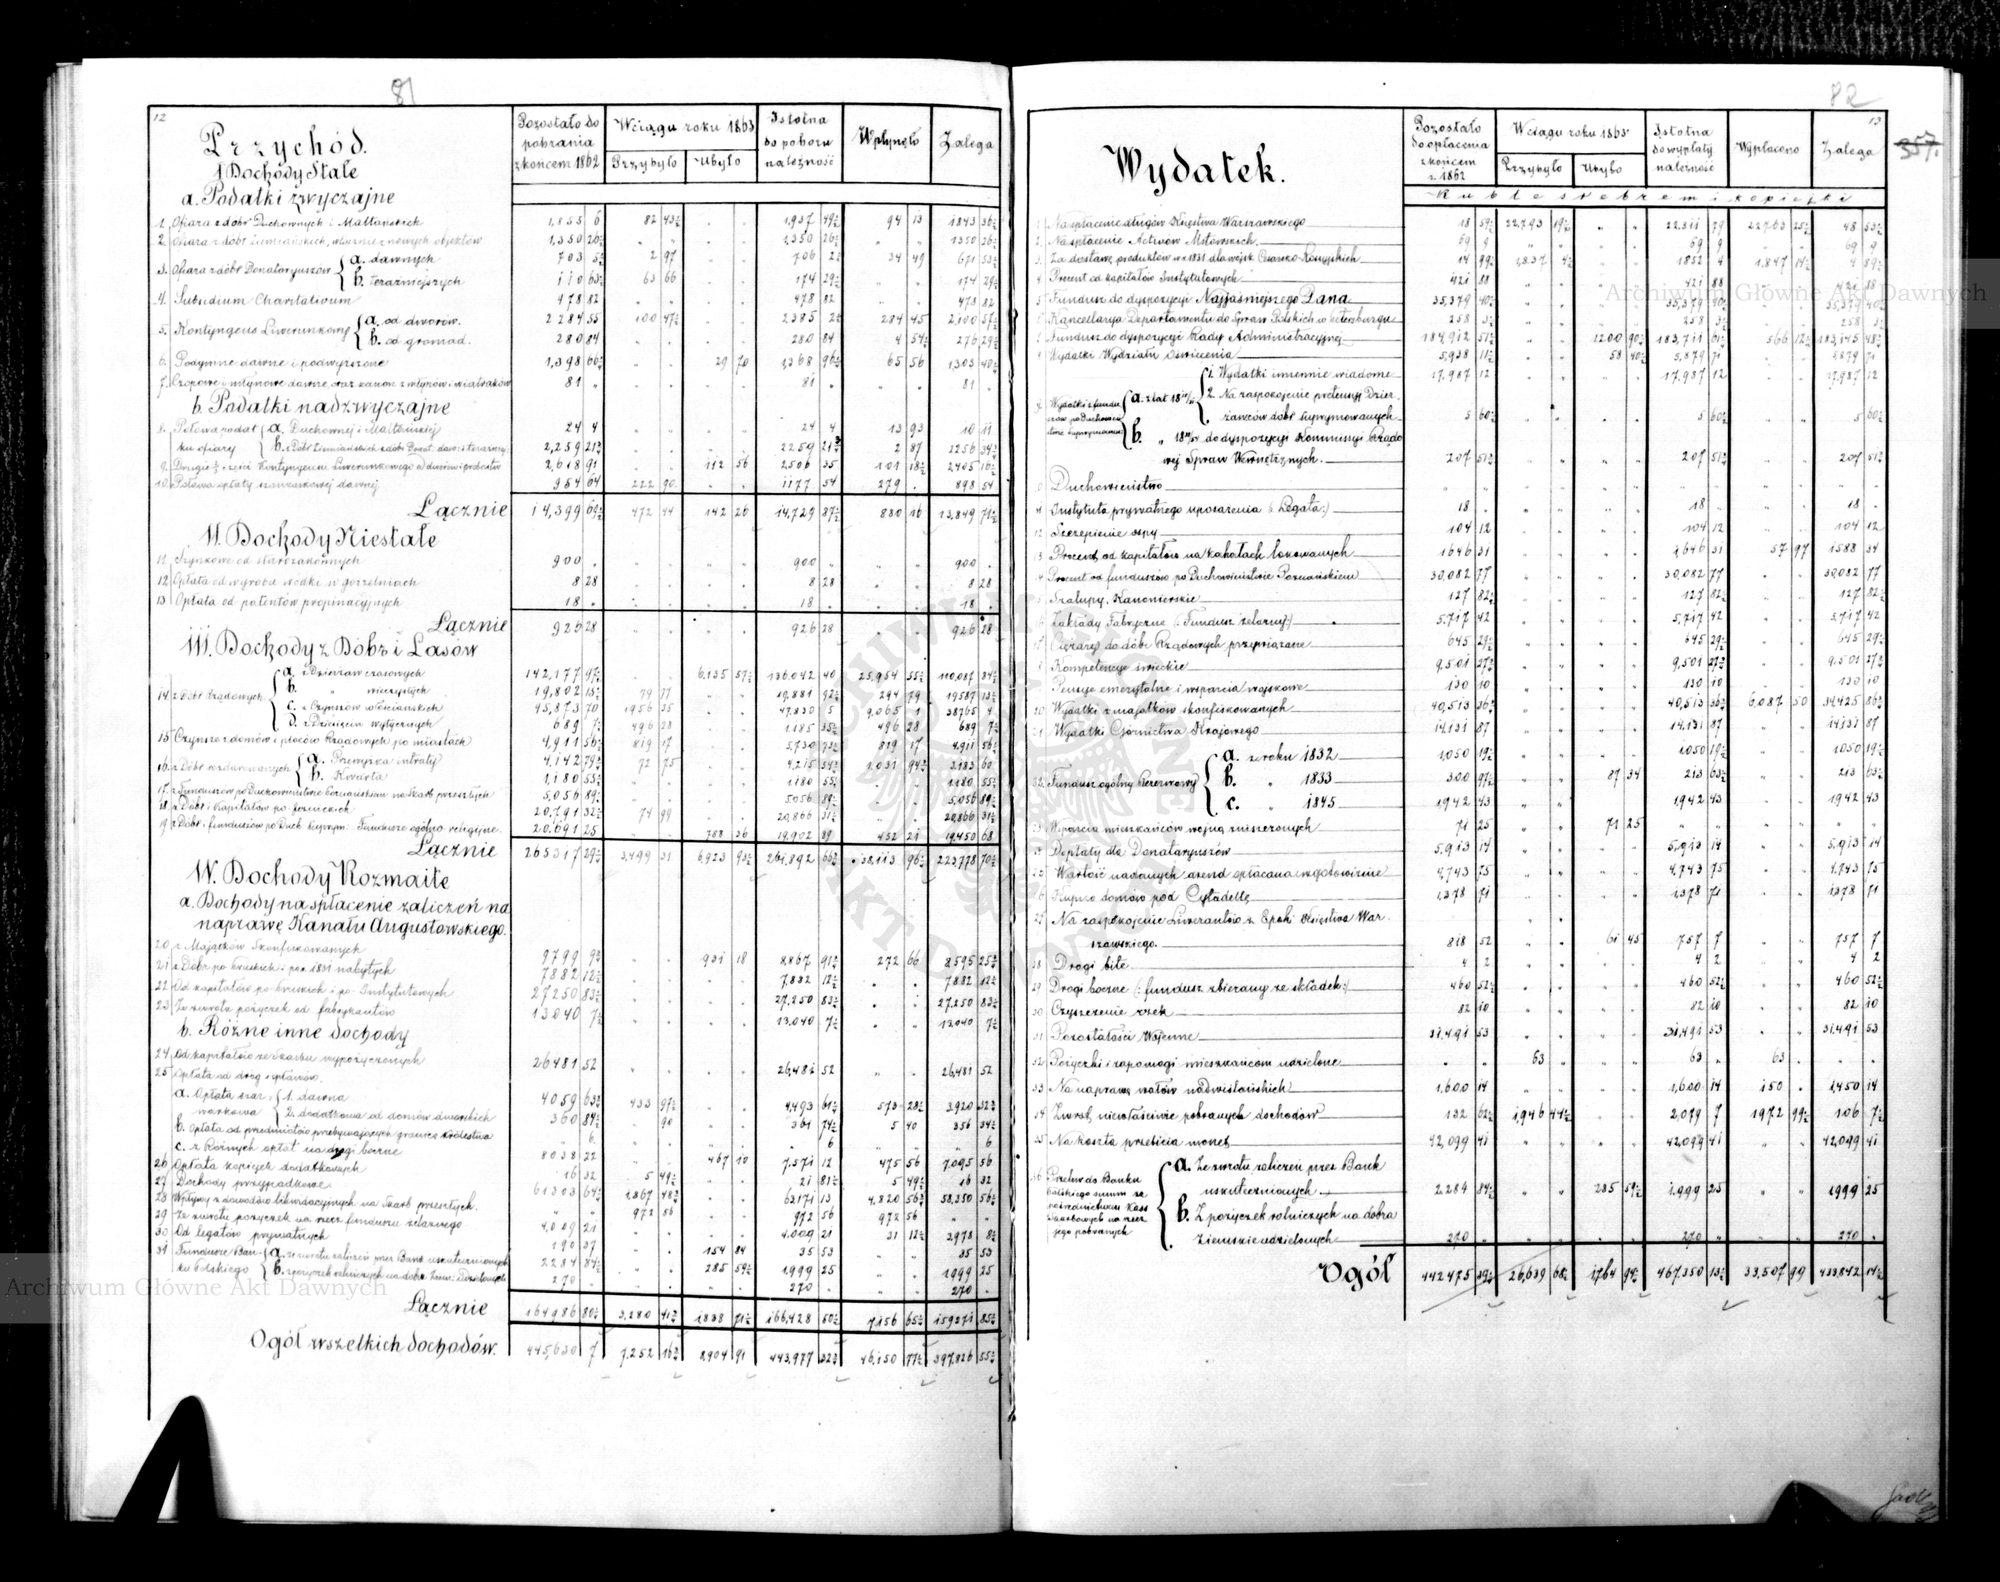 81
12
Przychód.
I Dochody Stałe
a. Podatki zwyczajne
Pozostało do pobrania z końcem 1862
Wciągu roku 1863
Przybyło
Ubyło
Istotna do poboru należność
Wpłynęło
Zalega
1. Ofiara z dóbr Duchownych i Maltańskich 1,855 6 82 43½ 1,937 49½ 94 13 1843 36½
2. Ofiara z dóbr Ziemiańskich, 1,350 26½ 1,350 26½ 1350 26½
3. Ofiara z dóbr Donataryuszów a. dawnych 703 5½ 2 97 706 2½ 34 49 671 53½
b. teraźniejszych 110 63½ 63 66 174 29½ 174 29½
4. Subsidium Charitativum 478 82 478 82 478 82
5. Kontyngens Liwerunkowy a. od dworów. 2284 55 100 47½ 2385 2½ 284 45 2,100 57½
b. od gromad. 280 84 280 84 4 54½ 276 29½
6. Podymne dawne i podwyższone 1,398 66½ 29 70 1,368 96½ 65 56 1303 40½
7. Czopowe i młynowe dawne oraz kanon z młynów i wiatraków 81 81 81
b. Podatki nadzwyczajne
8. Połowa podatku ofiary a. Duchownej i Maltańskiej 24 4 24 4 13 93 10 11
b. z Dóbr Ziemiańskich 2,259 21½ 2259 21½ 2 87 2256 34½
9. Drugie części Kontyngensu Liwerunkowego 2,618 91 112 56 2506 35 101 18½ 2,405 16½
10. Połowa opłaty szarwarkowej dawnej 954 64 222 90 1177 54 279 898 54
Łącznie 14,399 69½ 472 44 142 26 14,729 87½ 880 16 13,849 71½
II. Dochody Niestałe
11. Szynkowe od starozakonnych 900 900 900
12. Opłata od wyrobu wódki w gorzelniach 8 28 8 28 8 28
13. Opłata od patentów propinacyjnych 18 18 18
Łącznie 926 28 926 28 926 28
III. Dochody z Dóbr i Lasów
14. z Dóbr Rządowych a. z Dzierżaw czasowych 142,177 97½ 6,135 57½ 136,042 40 25,954 55½ 110,087 84½
b. " wieczystych 19,802 15½ 79 77 19,881 92½ 294 79 19587 13½
c. z Czynszów włościańskich 45,873 70 1956 35 47,830 5 9,065 1 38765 4
d. z Dziesięcin wytycznych 689 7½ 496 28 1,185 35½ 496 28 689 7½
15. Czynsze z domów i placów Rządowych po miastach 4,911 56½ 819 17 5,730 73½ 819 17 4,911 56½
16. z Dóbr rozdarowanych a. Przewyżka intraty 4,142 79½ 72 75 4,215 54½ 1,031 94½ 3183 60
b. Kwarta 1,180 55½ 1180 55½ 1180 55½
17. z Funduszów po Duchowieństwie Poznańskiem na Skarb przeszłych 5,056 89½ 5056 89½ 5,056 89½
18. z Dóbr i Kapitałów po-Jezuickich 20,791 32½ 74 99 20,866 31½ 20,866 31½
19. z Dóbr i funduszów po Duch. Suprym: Fundusze ogólno-religijne. 20,691 25 788 36 19,902 89 452 21 19,450 68
Łącznie 265317 29½ 3,499 31 6,923 93½ 261,892 66½ 38,113 96½ 223,778 70½
IV. Dochody Rozmaite
a. Dochody na spłacenie zaliczeń na
naprawę Kanału Augustowskiego.
20. z Majątków Skonfiskowanych 9799 9½ 931 18 8,867 91½ 272 66 8595 25½
21. z Dóbr po Pruskich i po r. 1831 nabytych 7882 12½ 7,882 12½ 7,882 12½
22. Od kapitałów po-Pruskich i po-Instytutowych 27250 83½ 27,250 83½ 27,250 83½
23. Ze zwrotu pożyczek od fabrykantów 13040 7½ 13,040 7½ 13040 7½
b. Różne inne dochody
24. Od kapitałów ze Skarbu wypożyczonych 26481 52 26,481 52 26,481 52
25. Opłata od dróg i spławów.
a. Opłata szarwarkowa 1. dawna 4059 63½ 433 97½ 4,493 61½ 573 28½ 3920 32½
2. dodatkowa od domów dworskich 360 84½ 90 361 74½ 5 40 356 34½
b. opłata od przedmiotów przebywających granicę Królestwa 6 6 6
c. z Różnych opłat na drogi boczne 8038 22 467 10 7,571 12 475 56 7,095 56
26. Opłata kopiejek dodatkowych 16 32 5 49½ 21 81½ 5 49½ 16 32
27. Dochody przypadkowe 61303 64½ 1,867 48½ 63171 13 4,820 56½ 58,350 56½
28. Wpływy z dowodów likwidacyjnych na Skarb przeszłych. 972 56 972 56 972 56
29. Ze zwrotu pożyczek na rzecz funduszu żelaznego 4,009 21 4,009 21 31 12½ 3978 8½
30. Od legatów prywatnych 190 37 154 84 35 53 35 53
31. Fundusze Banku Polskiego a. ze zwrotu zaliczeń przez Bank uskutecznionych 2284 84½ 285 59½ 1,999 25 1999 25
b. z pożyczek rolniczych na dobra Ziem: Udzielonych 270 270 270
Łącznie 164986 80½ 3,280 41½ 1838 71½ 166,428 50½ 7,156 65½ 159271 85½
Ogół wszelkich dochodów. 445,630 7 7,252 16½ 8,904 91 443,977 32½ 46,150 77½ 397,826 55½
82
13
357.
Wydatek.
Pozostało do opłacenia z końcem r. 1862
Wciągu roku 1863
Przybyło
Ubyło
Istotna do wypłaty należność
Wypłacono
Zalega
Ruble srebrem i kopiejki
1. Na spłacenie długów Księstwa Warszawskiego 18 59½ 22,793 19½ 22,811 79 22,763 25½ 48 53½
2. Na spłacenie Activów Mitawskich 69 9 69 9 69 9
3. Za dostawę produktów w r. 1831 dla wojsk Cesarsko-Rossyjskich 14 99½ 1,837 4½ 1852 4 1,847 14½ 4 89½
4. Procent od kapitałów Instytutowych 421 88 421 88 421 88
5. Fundusz do dyspozycyi Najjaśniejszego Pana 35,379 40½ 35,379 40½ 35,379 40½
6. Kancellarya Departamentu do Spraw Polskich w Petersburgu 258 3½ 258 3½ 258 3½
7. Fundusz do dyspozycyi Rady Administracyjnej 184,912 51½ 1200 90½ 183,711 61½ 566 12½ 183,145 48½
8. Wydatki Wydziału Oświecenia 5,938 11½ 58 40½ 5,879 71 5879 71
9. Wydatki z funduszów po Duchowieństwie Suprymowanem a. z lat 1. Wydatki imiennie wiadome 17,987 12 17,987 12 17,987 12
2. Na zaspokojenie pretensyj Dzier-
żawców dóbr suprymowanych 5 60½ 5 60½ 5 60½
b. " do dyspozycyi Kommissyi Rządo
wej Spraw Wewnętrznych. 207 51½ 207 51½ 207 51½
10. Duchowieństwo
11. Instytuta prywatnego uposażenia (: Legata:) 18 18 18
12. Szczepienie ospy 104 12 104 12 104 12
13. Procent od kapitałów na kahałach lokowanych 1646 31 1646 31 57 97 1588 34
14. Procent od funduszów po Duchowieństwie Poznańskiem 30,082 77 30,082 77 30,082 77
15. Szalupy Kanonierskie 127 82½ 127 82½ 127 82½
16. Zakłady Fabryczne (: Fundusz żelazny:) 5,717 42 5,717 42 5,717 42
17. Ciężary do dóbr Rządowych przywiązane 645 29½ 645 29½ 645 29½
18. Kompetencye świeckie 9,501 27½ 9,501 27½ 9,501 27½
19. Pensye emerytalne i wsparcia wojskowe 130 10 130 10 130 10
20. Wydatki z majątków skonfiskowanych 40,513 36½ 40,513 36½ 6,087 50 34,425 86½
21. Wydatki Górnictwa Krajowego 14,131 87 14,131 87 14,131 87
22. Fundusz ogólny Rezerwowy a. z roku 1832 1,050 19½ 1050 19½ 1050 19½
b. " 1833 300 97½ 87 34 213 63½ 213 63½
c. " 1845 1,942 43 1,942 43 1,942 43
23. Wsparcia mieszkańców wojną zniszczonych 71 25 71 25
24. Dopłaty dla Donataryuszów 5,913 14 5,913 14 5,913 14
25. Wartość nadanych arend opłacana w gotowiznie 4,743 75 4,743 75 4,743 75
26. Kupno domów pod Cytadellę 1,378 71 1,378 71 1,378 71
27. Na zaspokojenie Liwerantów z Epoki Księstwa War-
szawskiego. 818 52 61 45 757 7 757 7
28. Drogi bite 4 2 4 2 4 2
29. Drogi boczne (: fundusz zbierany ze składek:) 460 52½ 460 52½ 460 52½
30. Czyszczenie rzek 82 10 82 10 82 10
31. Pozostałości Wojenne 31,491 53 31,491 53 31,491 53
32. Pożyczki i zapomogi mieszkańcom udzielone 63 63 63
33. Na naprawę wałów nadwiślańskich 1,600 14 1,600 14 150 1,450 14
34. Zwrot niewłaściwie pobranych dochodów 132 62½ 1,946 44½ 2,079 7 1972 99½ 106 7½
35. Na koszta przebicia monet 42,099 41 42,099 41 42,099 41
36. Przelew do Banku Polskiego summ za pośrednictwem Kass Skarbowych na rzecz jego pobranych
a. Ze zwrotu zaliczeń przez Bank
uskutecznionych 2284 84½ 285 59½ 1,999 25 1999 25
b. Z pożyczek rolniczych na dobra
Ziemskie udzielonych 270 270 270
Ogół 442475 39½ 26,639 68½ 1,764 94½ 467,350 13½ 33,507 99 433,842 14½
Archiwum Główne Akt Dawnych
Archiwum Główne Akt Dawnych
ARCHIWUM GŁÓWNE AKT DAWNYCH